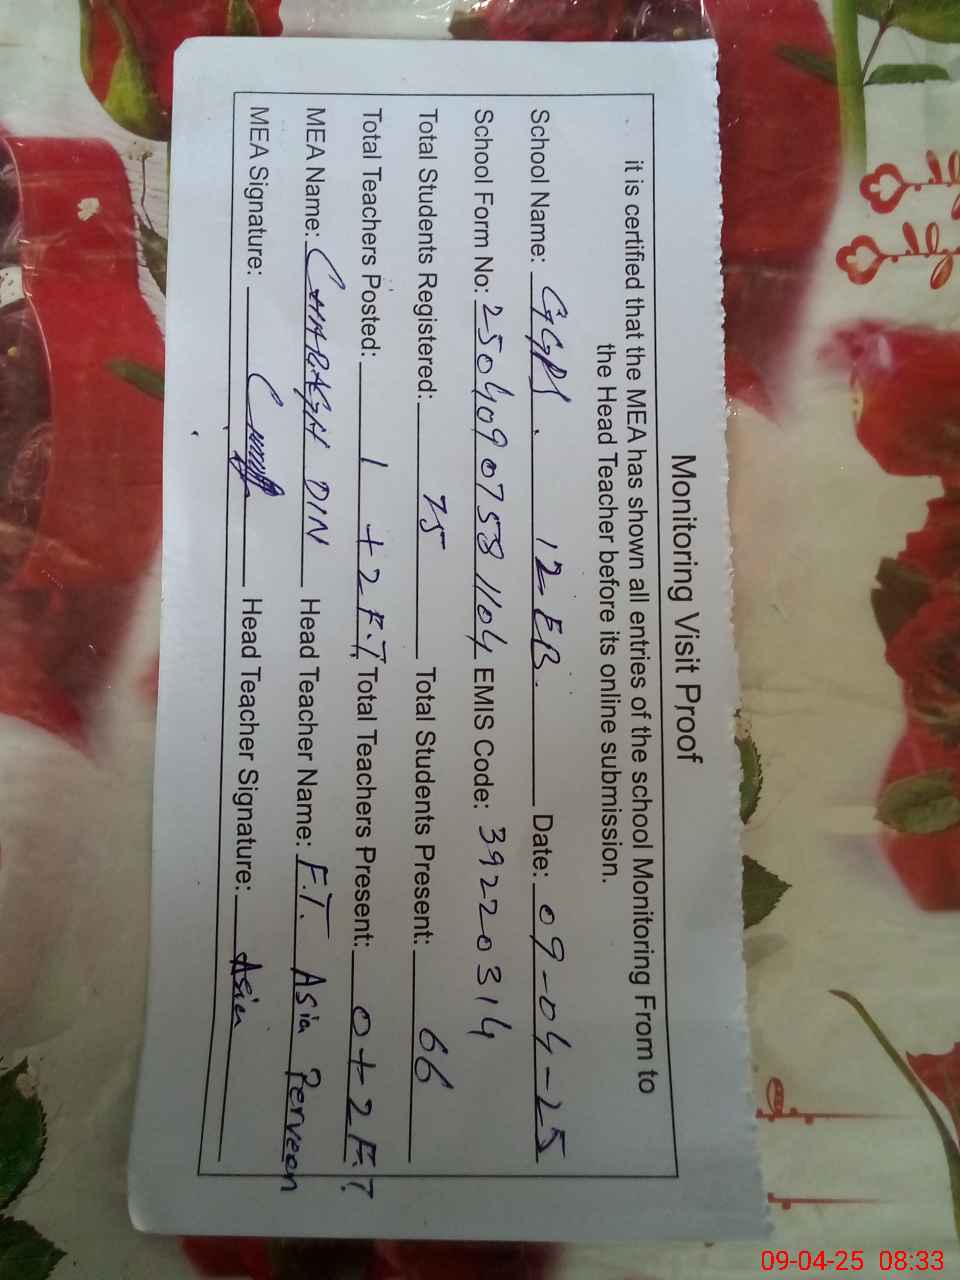 Monitoring Visit Proof
it is certified that the MEA has shown all entries of the school Monitoring From to
the Head Teacher before its online submission.
School Name: GGPS . 12-EB. Date: 09-04-25
School Form No: 2504090758 1104 EMIS Code: 39220314
Total Students Registered: 75 Total Students Present: 66
Total Teachers Posted: 1 + 2 F.T, Total Teachers Present: 0 + 2 F.T
MEA Name: CHARAGH DIN Head Teacher Name: F.T. Asia Perveen
MEA Signature: Head Teacher Signature: Asia
09-04-25 08:33